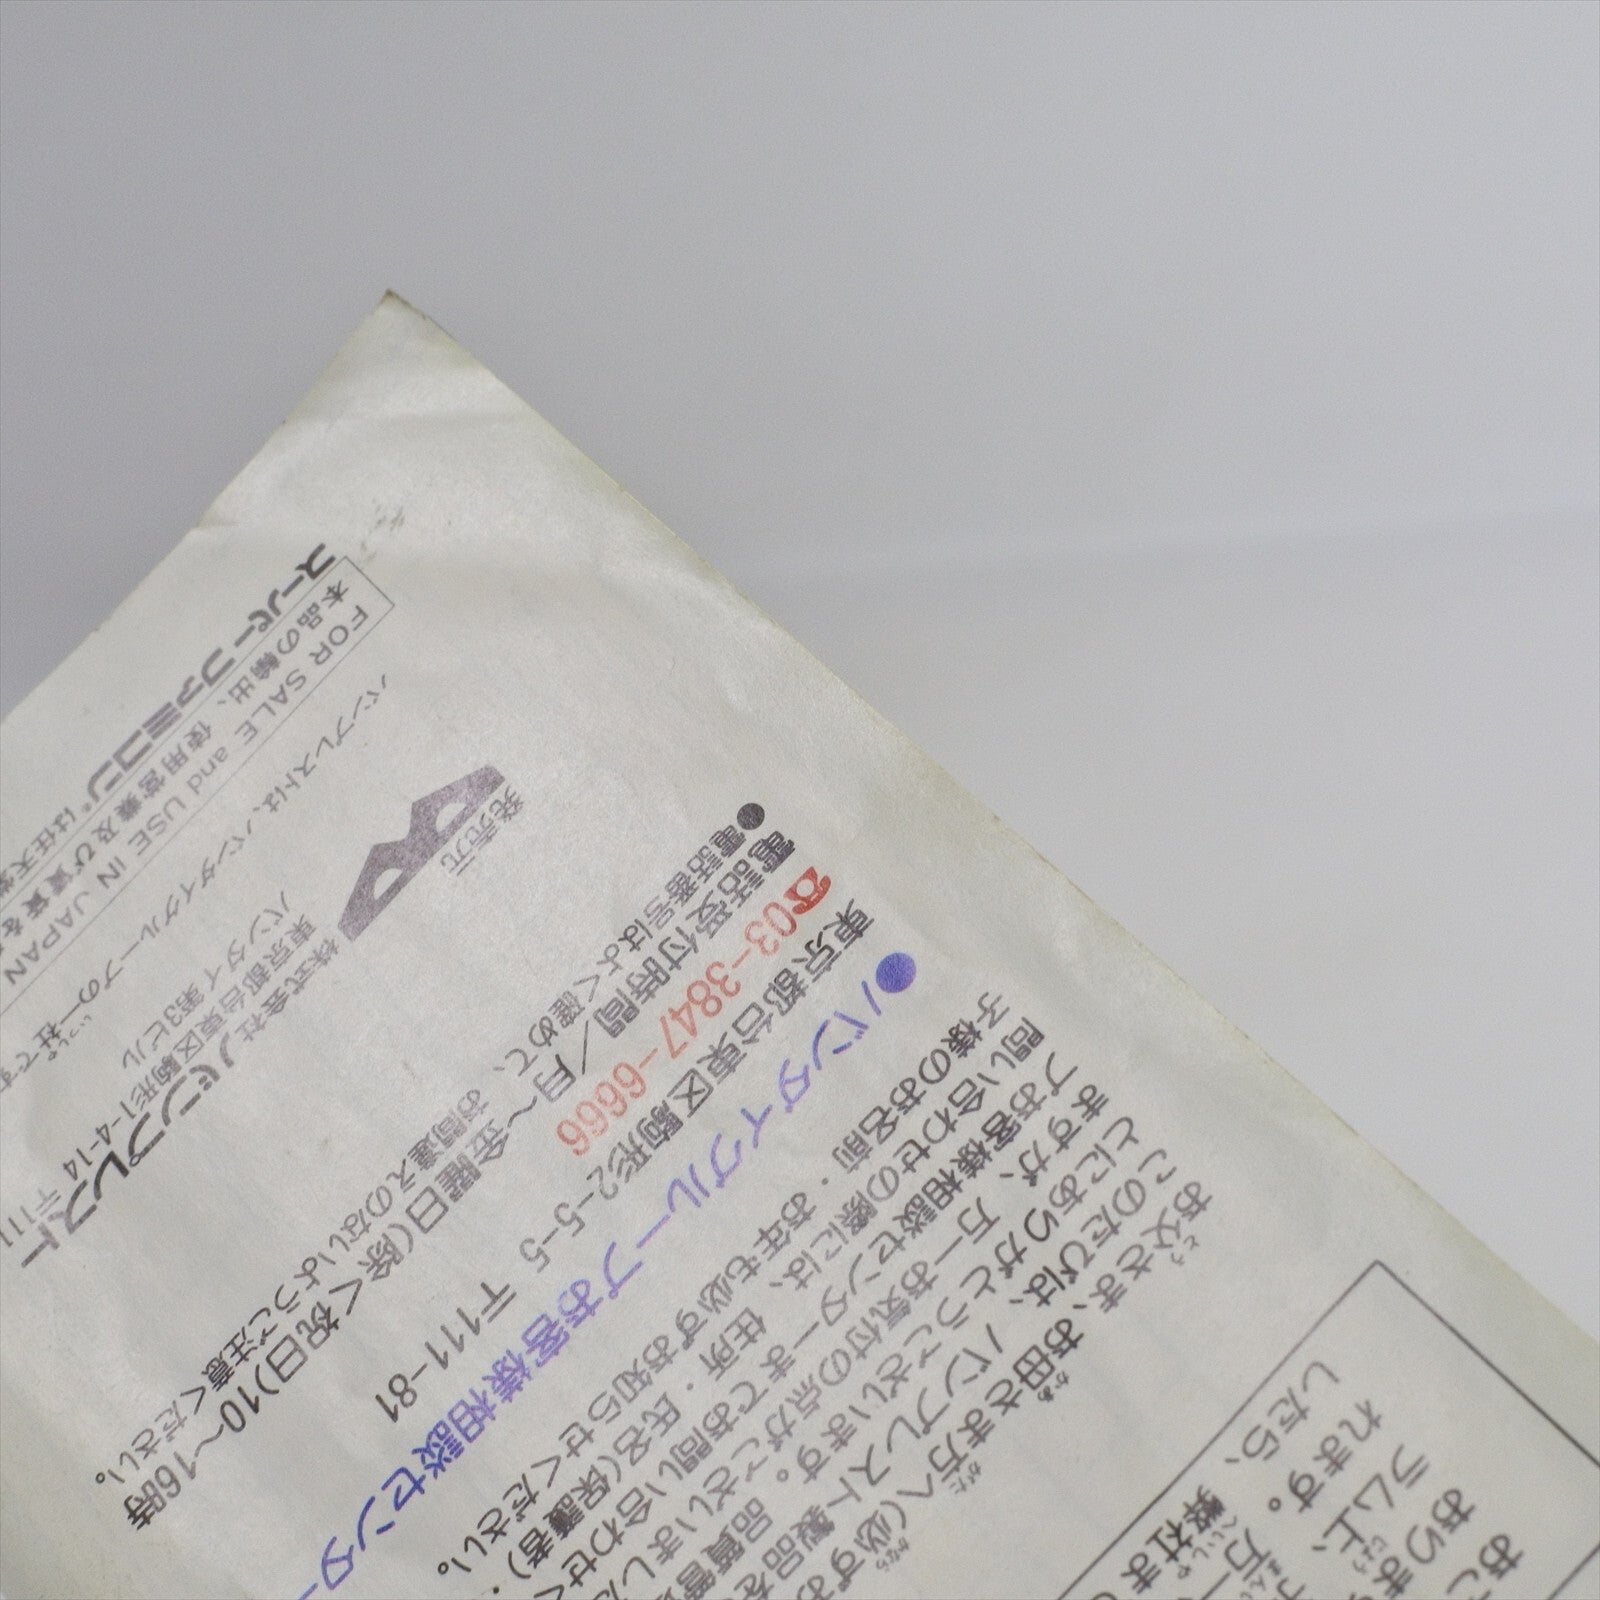 お父さま、お母さま方へ(必ずお
このたびは、バンプレスト製品を
とにありがとうございます。品質管
ますが、万一お気付の点がございました
プお客様相談センターまでお問い合わせく
問い合わせの際には、住所・氏名(保護者)・
子様のお名前・お年も必ずお知らせください。
●バンダイグループお客様相談センター
東京都台東区駒形2-5-5 〒111-81
☎03-3847-6666
電話受付時間/月〜金曜日(除く祝日)10〜16時
●電話番号はよく確めて、お間違えのないようご注意ください。
発売元
株式会社バンプレスト
東京都台東区駒形1-4-14 〒111
バンダイ第3ビル
バンプレストは、バンダイグループの一社です
FOR SALE and USE IN JAPAN
本品の輸出、使用営業及び賃貸を
スーパーファミコン®は任天堂
おこ
おりま
ラム上、
れます。万一
したら、弊社ま